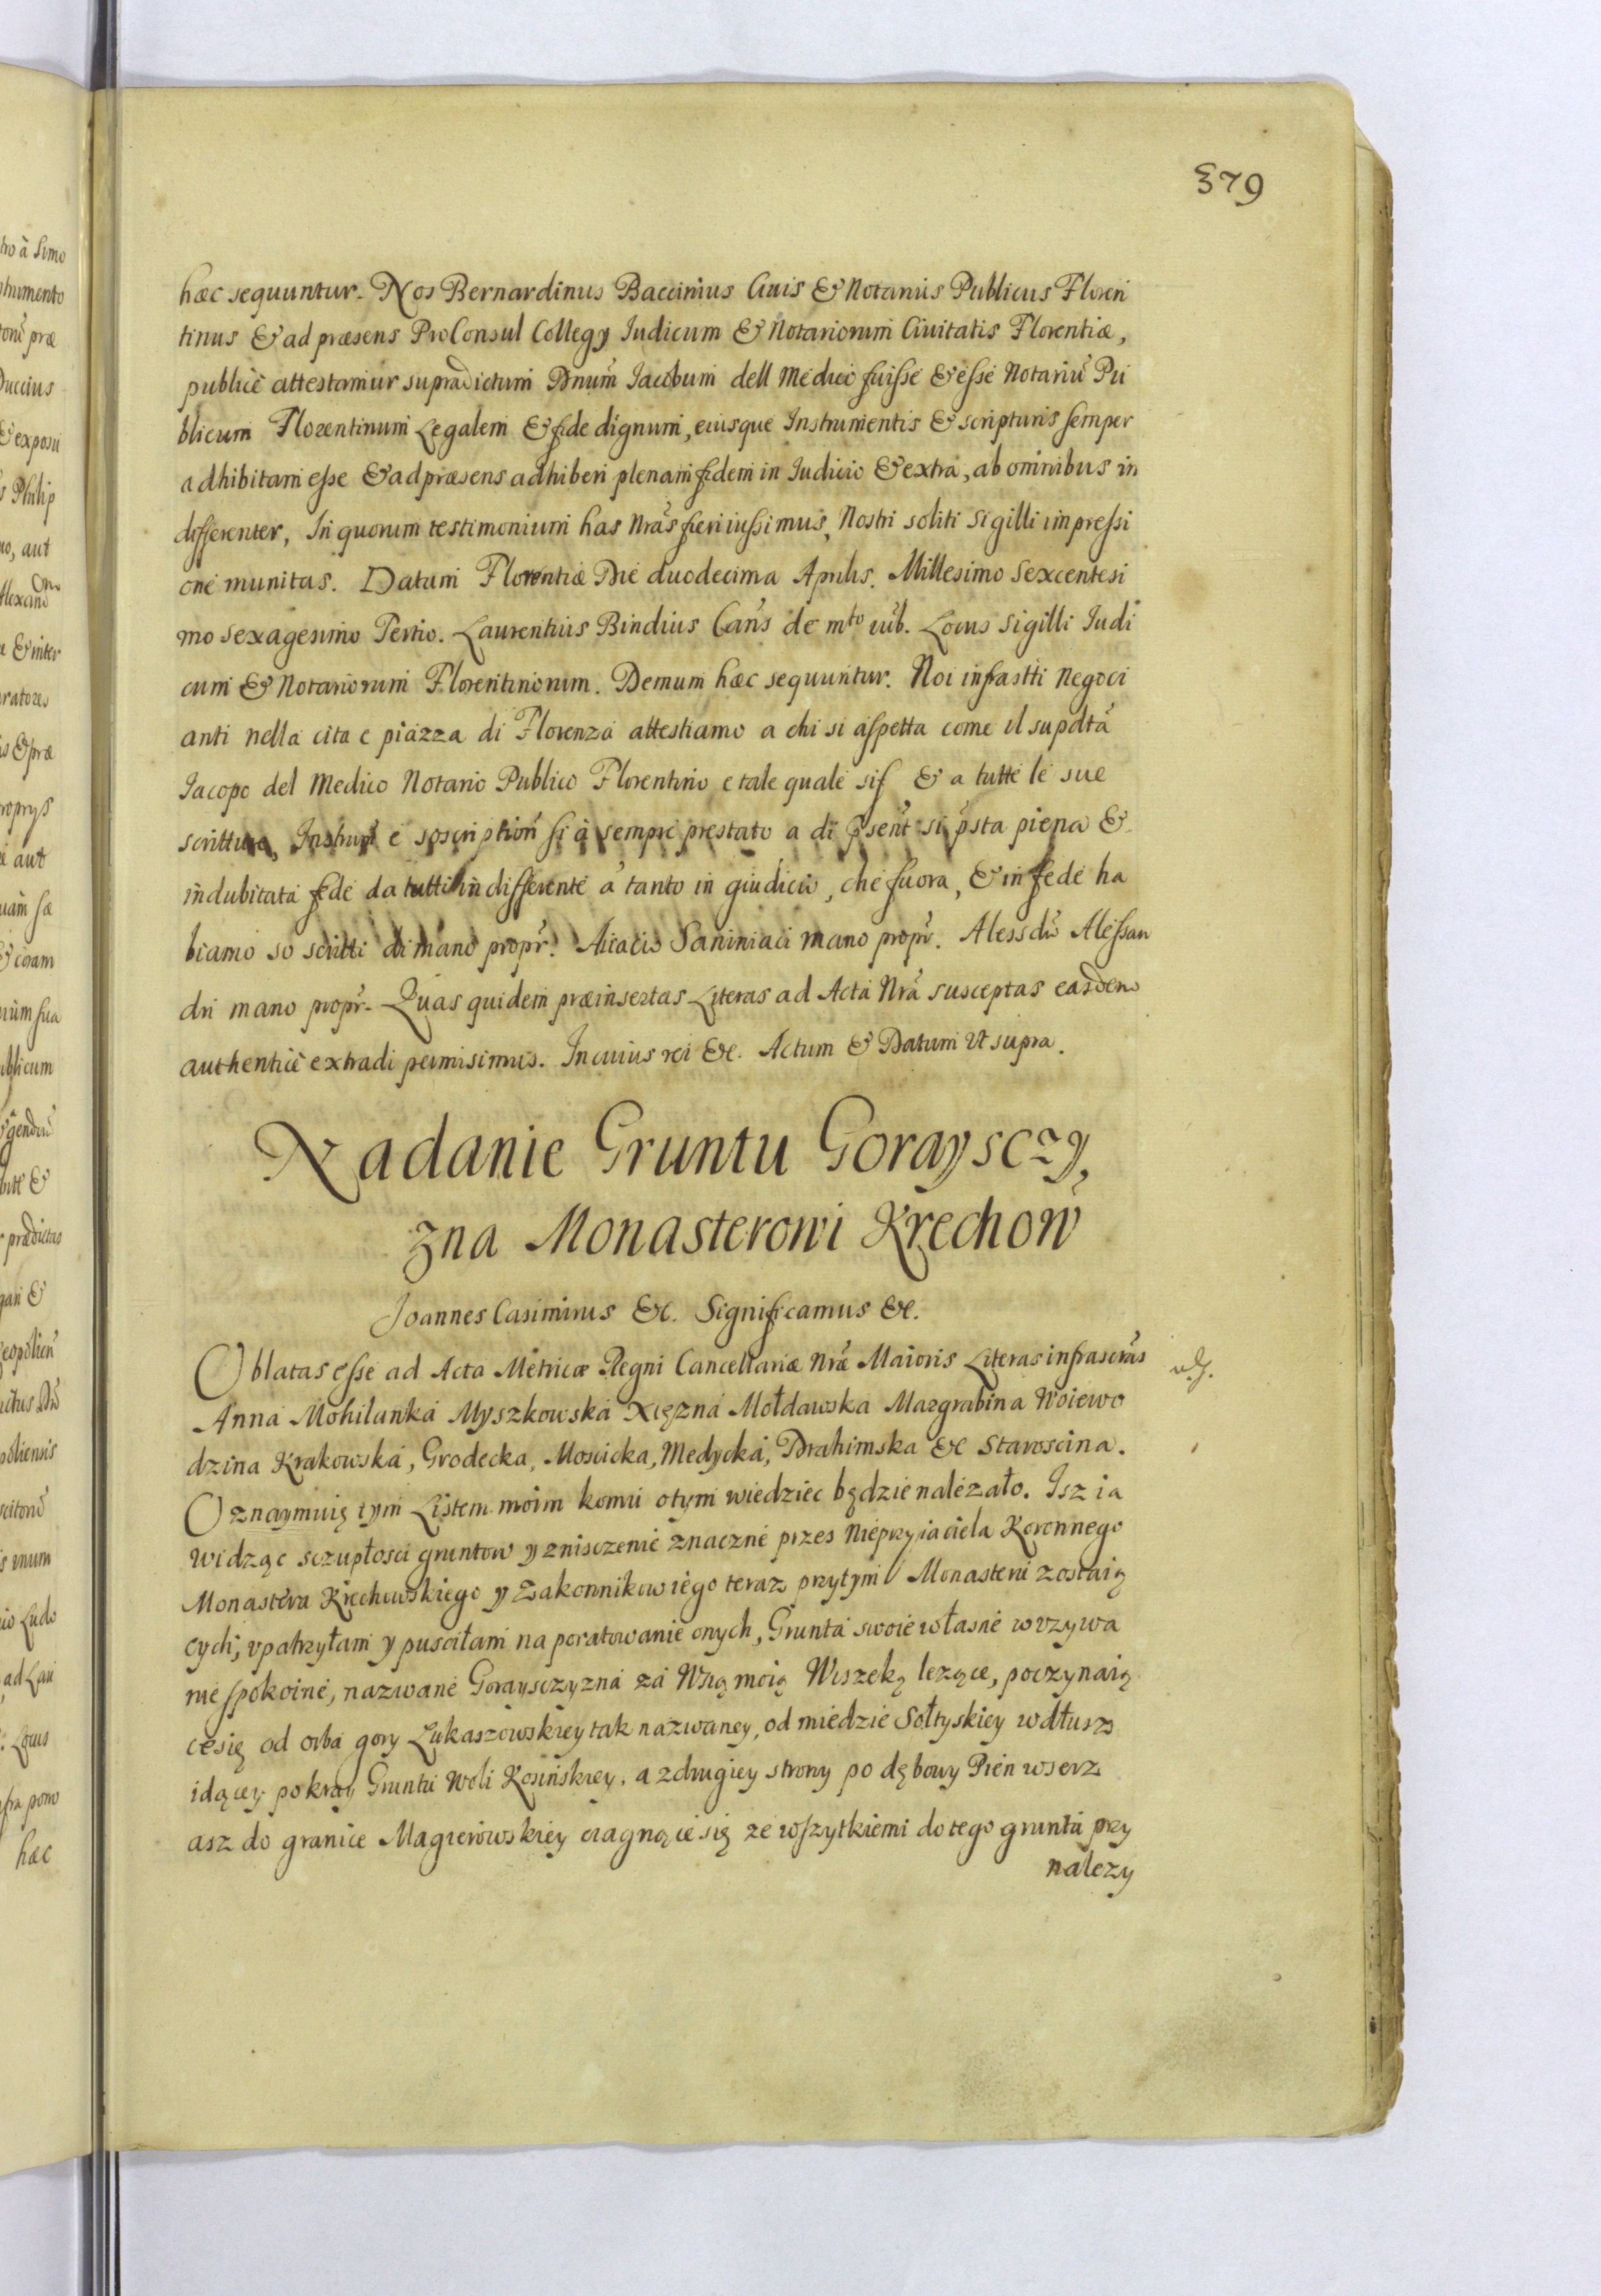 379
hæc sequuntur. Nos Bernardinus Baccinius Ciuis & Notarius Publicus Floren
tinus & ad præsens ProConsul Collegy Iudicum & Notariorum Ciuitatis Florentiæ,
publicè attestamur supradictum Dnum̃ Iacobum dell Medico fuisse & esse Notariũ Pu
blicum Florentinum Legalem & fide dignum, eiusque Instrumentis & scripturis semper
adhibitam esse & ad præsens adhiberi plenam fidem in Iudicio & extra, ab omnibus in
differenter, In quorum testimonium has Nrãs fieri iussimus, Nostri soliti Sigilli impressi
one munitas. Datum Florentiæ Die duodecima Aprilis. Millesimo Sexcentesi
mo sexagesimo Tertio. Laurentius Bindius Canš de mto Locus Sigilli Iudi
cum & Notariorum Florentinorum. Demum hæc sequuntur. Noi infrastti Negoci
anti nella cita e piazza di Florenza attestiamo a chi si aspetta come il supdtã
Iacopo del Medico Notario Publico Florentino e tale quale sif & a tutte le sue
scritture, Instrum̃ e soscription̈ si à sempre prestato a di p̃sent̃ si p̃sta piena &
indubitata fede da tutti indifferente à tanto in giudicio, che fuora, & in fede ha
biamo so scritti di mano propr̃. Saniniaci mano propr̃. Alessdr̃o Alessan
dri mano propr̃. Quas quidem præinsertas Literas ad Acta Nrã susceptas easdem
authenticè extradi permisimus. In cuius rei &c. Actum & Datum Vt supra.
Nadanie Gruntu Goraysczy,
zna Monasterowi Krechow̃
Joannes Casimirus &c. Significamus &c.
Oblatas esse ad Acta Metricæ Regni Cancellariæ Nrã Maioris Literas infrascrãs
Anna Mohilanka Myszkowska Xiężna Mołdawska Margrabina Woiewo
dzina Krakowska, Grodecka, Moscicka, Medycka, Drahimska &c Staroscina.
Oznaymuię tym Listem moim komu otym wiedziec będzie nalezało. Isz ia
widząc sczupłosci gruntow y znisczenie znaczne przes Nieprzyiaciela Koronnego
Monastera Krechowskiego y Zakonnikow iego teraz przytym Monasteru zostaią
cych, vpatrzyłam y pusciłam na poratowanie onych, Grunta swoie własne w vzywa
nie spokoine, nazwane Goraysczyzna za Wsią moią Wiszeką lezące, poczynaią
cesię od orba gory Łukaszowskiey tak nazwaney, od miedzie Sołtyskiey wdłusz
idącey po kray Gruntu Woli Kosińskiey. a zdrugiey strony po dębowy Pien wserz
asz do granice Magierowskiey ciagnącie się ze wszytkiemi do tego gruntu przy
nalezy